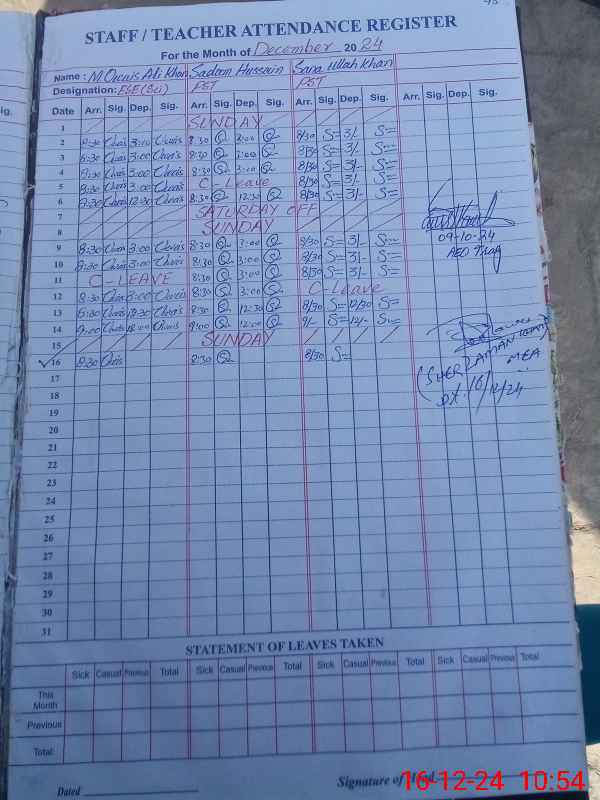 STAFF / TEACHER ATTENDANCE REGISTER
For the Month of December 2024
Name : M Owais Ali Khan Sadam Hussain Sana Ullah Khan
Designation: PST PST
Date Arr. Sig. Dep. Sig. Arr. Sig. Dep. Sig. Arr. Sig. Dep. Sig. Arr. Sig. Dep. Sig.
1 SUNDAY
2 8:30 Owais 3:00 Owais 8:30 3:00 8/30 S= 3/- S=
3 8:30 Owais 3:00 Owais 8:30 3:00 8/30 S= 3/- S=
4 8:30 Owais 3:00 Owais 8:30 3:00 8/30 S= 3/- S=
5 8:30 Owais 3:00 Owais C-Leave 8/30 S= 3/- S=
6 8:30 Owais 12:30 Owais 8:30 12:30 8/30 S= 3/- S=
7 SATURDAY OFF
8 SUNDAY
09-10-24
9 8:30 Owais 3:00 Owais 8:30 3:00 8/30 S= 3/- S=
10 8:30 Owais 3:00 Owais 8:30 3:00 8/30 S= 3/- S=
11 C-LEAVE 8:30 3:00 8/30 S= 3/- S=
12 8:30 Owais 3:00 Owais 8:30 3:00 C-Leave
13 8:30 Owais 12:30 Owais 8:30 12:30 8/30 S= 12/30 S=
14 9:00 Owais 12:00 Owais 9:00 12:00 9/- S= 12/- S=
15 SUNDAY
16 8:30 Owais 8:30 8/30 S=
(SHER ZAMAN KHAN)
MEA
Dt. 16/12/24
17
18
19
20
21
22
23
24
25
26
27
28
29
30
31
STATEMENT OF LEAVES TAKEN
Sick Casual Previous Total Sick Casual Previous Total Sick Casual Previous Total Sick Casual Previous Total
This Month
Previous
Total:
Dated
Signature of
16-12-24 10:54